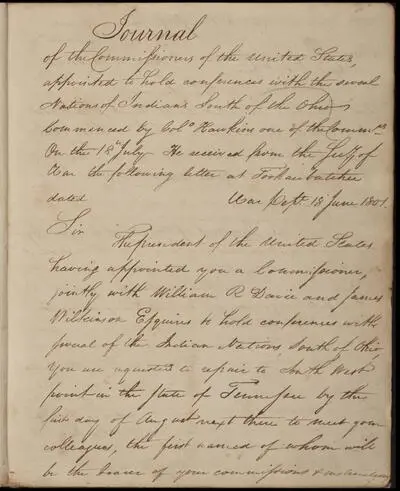 Journal
of the Commissioners of the United States
appointed to hold conferences with the several
Nations of Indians South of the Ohio
Commenced by Colo Hawkins one of the Commrs
On the 18th July He received from the Secy of
War the following letter at Tookaubatchee
dated War Dept. 18 June 1801.
Sir
The president of the United States
having appointed you a Commissioner,
jointly with William R Davie and James
Wilkinson Esquires to hold conferences with
several of the Indian Nations, South of Ohio
You are requested to repair to South West
point in the State of Tennessee by the
first day of August next there to meet your
colleagues, the first named of whom will
be the bearer of your commissions &